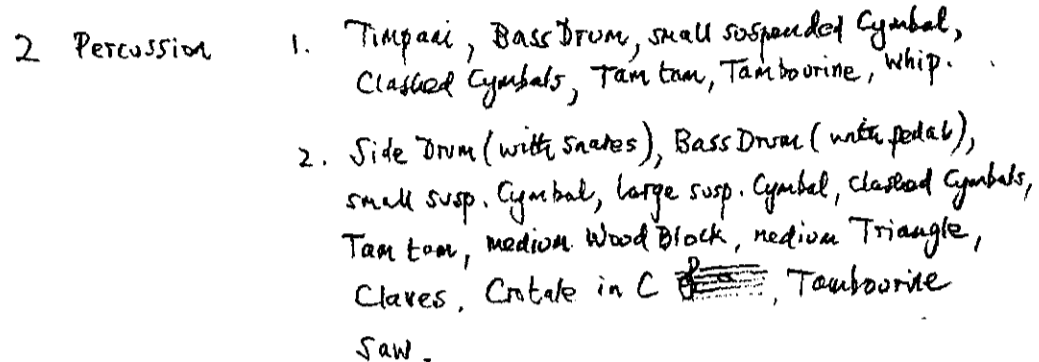 2 Percussion 1. Timpani, Bass Drum, small suspended Cymbal,
Clashed Cymbals, Tam tam, Tambourine, Whip.
2. Side Drum (with snares), Bass Drum (with pedal),
small susp. Cymbal, large susp. Cymbal, clashed Cymbals,
Tam tam, medium Wood Block, medium Triangle,
Claves, Crotale in C, Tambourine
Saw.